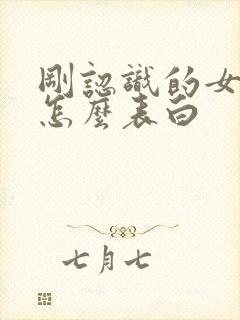 剛認識的女
怎麼表白
七月七